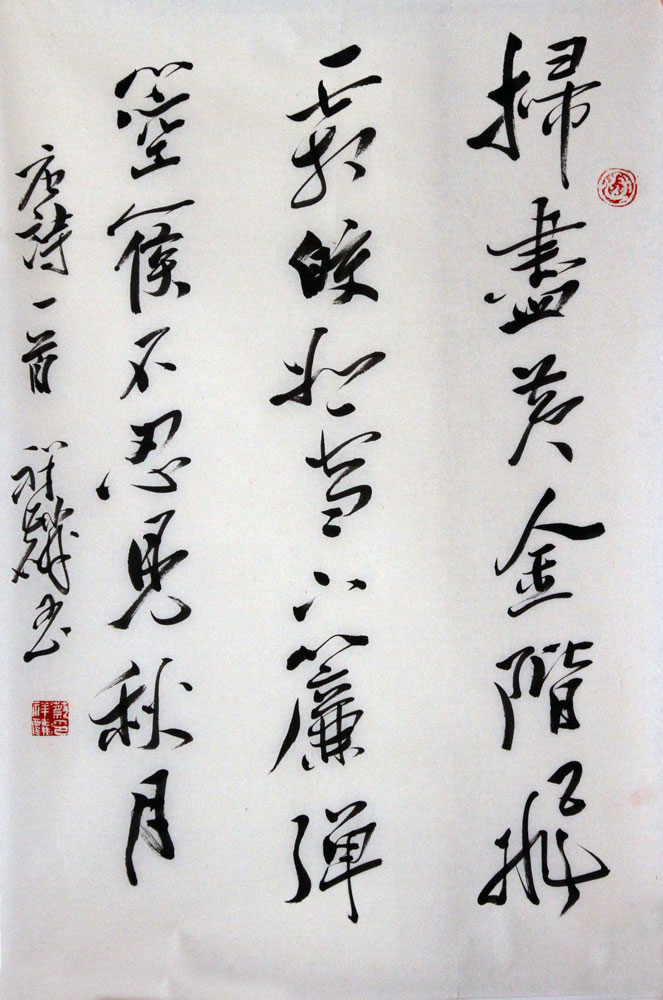 掃盡黄金階飛
霜皎如雪下簾弾
箜篌不忍見秋月
唐詩一首 祥麟书